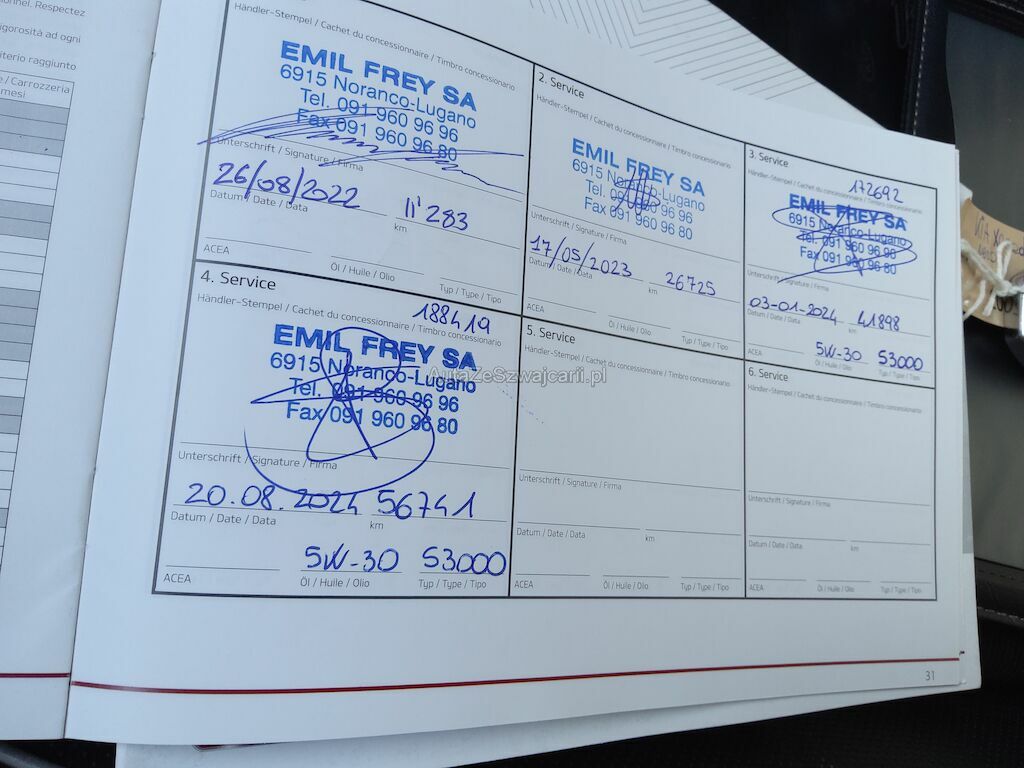 nnel. Respectez
igorosità ad ogni
iterio raggiunto
e / Carrozzeria
mesi
Händler-Stempel / Cachet du concessionnaire / Timbro concessionario
EMIL FREY SA
6915 Noranco-Lugano
Tel. 091 960 96 96
Fax 091 960 96 80
Unterschrift / Signature / Firma
26/08/2022
11'283
Datum / Date / Data
km
ACEA
Öl / Huile / Olio
Typ / Type / Tipo
2. Service
Händler-Stempel / Cachet du concessionnaire / Timbro concessionario
EMIL FREY SA
6915 Noranco-Lugano
Tel. 091 960 96 96
Fax 091 960 96 80
Unterschrift / Signature / Firma
17/05/2023
26725
Datum / Date / Data
km
ACEA
Öl / Huile / Olio
Typ / Type / Tipo
3. Service
Händler-Stempel / Cachet du concessionnaire / Timbro concessionario
172692
EMIL FREY SA
6915 Noranco-Lugano
Tel. 091 960 96 96
Fax 091 960 96 80
Unterschrift / Signature / Firma
03-01-2024
41898
Datum / Date / Data
km
5W-30
S3000
ACEA
Öl / Huile / Olio
Typ / Type / Tipo
4. Service
Händler-Stempel / Cachet du concessionnaire / Timbro concessionario
188419
EMIL FREY SA
6915 Noranco-Lugano
Tel. 091 960 96 96
Fax 091 960 96 80
Unterschrift / Signature / Firma
20.08.2024
56741
Datum / Date / Data
km
5W-30
S3000
ACEA
Öl / Huile / Olio
Typ / Type / Tipo
5. Service
Händler-Stempel / Cachet du concessionnaire / Timbro concessionario
Unterschrift / Signature / Firma
Datum / Date / Data
km
ACEA
Öl / Huile / Olio
Typ / Type / Tipo
6. Service
Händler-Stempel / Cachet du concessionnaire / Timbro concessionario
Unterschrift / Signature / Firma
Datum / Date / Data
km
ACEA
Öl / Huile / Olio
Typ / Type / Tipo
AutaZeSzwajcarii.pl
31